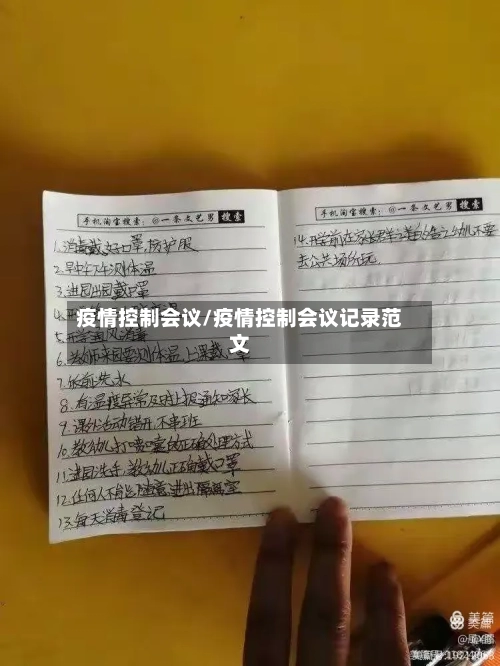 手机淘宝搜索:@一条文艺男 搜索
1.消毒戴好口罩,防护服
2.早中午测体温
3.进园出园戴口罩
疫情控制会议/疫情控制会议记录范
文
6.教师来园要测体温,上课戴口罩
7.饭前洗水
8.有温度异常及时上报通知家长
9.课外活动错开,不串班
10.教幼儿打喷嚏的正确处理方式
11.进园洗手,教幼儿正确戴口罩
12.任何人不能随意进出隔离室
13.每天消毒登记
手机淘宝搜索:@一条文艺男 搜索
14.开学前在家长群
去公共场所玩
美篇